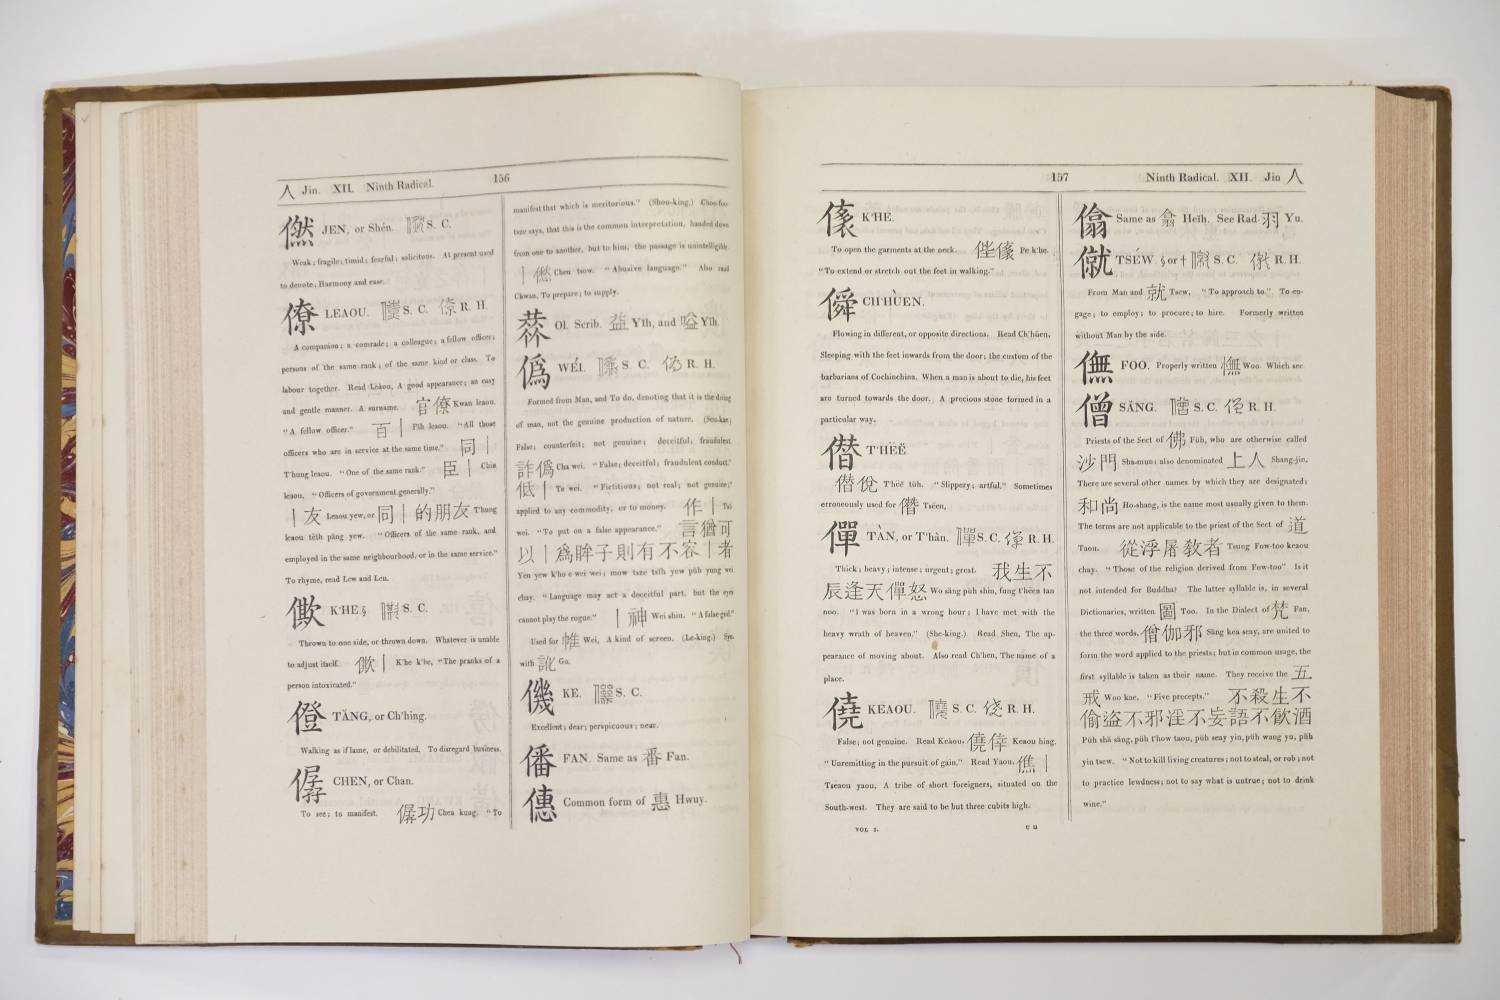 人 Jin. XII. Ninth Radical. 156
僬 JEN, or Shén. S. C.
Weak; fragile; timid; fearful; solicitous. At present used
to denote, Harmony and ease.
僚 LEAOU. S. C. R. H.
A companion; a comrade; a colleague; a fellow officer;
persons of the same rank; of the same kind or class. To
labour together. Read Leàou, A good appearance; an easy
and gentle manner. A surname. 官僚 Kwan leaou.
"A fellow officer." 百｜ Pĭh leaou. "All those
officers who are in service at the same time." 同｜
T'hung leaou. "One of the same rank." 臣｜ Chin
leaou. "Officers of government generally."
｜友 Leaou yew, or 同｜的朋友 T'hung
leaou tĕĭh păng yew. "Officers of the same rank, and
employed in the same neighbourhood, or in the same service."
To rhyme, read Lew and Leu.
僛 K'HE S. C.
Thrown to one side, or thrown down. Whatever is unable
to adjust itself. 僛｜ K'he k'he, "The pranks of a
person intoxicated."
僜 TĂNG, or Ch'hing.
Walking as if lame, or debilitated. To disregard business.
僝 CHEN, or Chan.
To see; to manifest. 僝功 Chen kung. "To
manifest that which is meritorious." (Shoo-king.) Choo-foo-
tsze says, that this is the common interpretation, handed down
from one to another, but to him, the passage is unintelligible.
｜僽 Chen tsow. "Abusive language." Also read
Chwan, To prepare; to supply.
Ol. Scrib. 益 Yĭh, and 嗌 Yĭh.
僞 WÉI. S. C. R. H.
Formed from Man, and To do, denoting that it is the doing
of man, not the genuine production of nature.
False; counterfeit; not genuine; deceitful; fraudulent
詐僞 Cha wei. "False; deceitful; fraudulent conduct."
低｜ Te wei. "Fictitious; not real; not genuine;"
applied to any commodity, or to money. 作｜ Tsŏ
wei. "To put on a false appearance." 言猶可
以｜爲眸子則有不容｜者
Yen yew k'ho e wei wei; mow tsze tsĭh yew pŭh yung wei
chay. "Language may act a deceitful part, but the eyes
cannot play the rogue." ｜神 Wei shin. "A false god."
Used for 帷 Wei, A kind of screen. (Le-king.) Syn.
with 訛 Go.
僟 KE. S. C.
Excellent; dear; perspicuous; near.
僠 FAN. Same as 番 Fan.
僡 Common form of 惠 Hwuy.
157 Ninth Radical. XII. Jin 人
K'HE.
To open the garments at the neck. Pe k'he.
"To extend or stretch out the feet in walking."
僢 CH'HÙEN.
Flowing in different, or opposite directions. Read Ch'hüen,
Sleeping with the feet inwards from the door; the custom of the
barbarians of Cochinchina. When a man is about to die, his feet
are turned towards the door. A precious stone formed in a
particular way.
僣 T'HËË
僣侻 T'hëĕ tŏh. "Slippery; artful." Sometimes
erroneously used for 僭 Tseén.
僤 TÀN, or T'hàn. S. C. 僤 R. H.
Thick; heavy; intense; urgent; great. 我生不
辰逢天僤怒 Wo săng pŭh shin, fung t'hëen tan
noo. "I was born in a wrong hour; I have met with the
heavy wrath of heaven." (She-king.) Read Shen, The ap-
pearance of moving about. Also read Ch'hen, The name of a
place.
僥 KEAOU. S. C. R. H.
False; not genuine. Read Keàou, 僥倖 Keaou hing.
"Unremitting in the pursuit of gain." Read Yaou, 僬｜
Tseaou yaou, A tribe of short foreigners, situated on the
South-west. They are said to be but three cubits high.
VOL. I. U U
僠 Same as 翕 Heĭh. See Rad. 羽 Yu.
僦 TSÉW § or † S. C. R. H.
From Man and 就 Tsew, "To approach to." To en-
gage; to employ; to procure; to hire. Formerly written
without Man by the side.
僫 FOO. Properly written 憮 Woo. Which see.
僧 SĂNG. S. C. R. H.
Priests of the Sect of 佛 Fŭh, who are otherwise called
沙門 Sha-mun; also denominated 上人 Shang-jin,
There are several other names by which they are designated;
和尚 Ho-shang, is the name most usually given to them.
The terms are not applicable to the priest of the Sect of 道
Taou. 從浮屠教者 Tsung Fow-too keaou
chay. "Those of the religion derived from Fow-too" Is it
not intended for Buddha? The latter syllable is, in several
Dictionaries, written 圖 Too. In the Dialect of 梵 Fan,
the three words, 僧伽邪 Săng kea seay, are united to
form the word applied to the priests; but in common usage, the
first syllable is taken as their name. They receive the 五
戒 Woo kae. "Five precepts." 不殺生不
偷盜不邪淫不妄語不飲酒
Pŭh shă săng, pŭh t'how taou, pŭh seay yin, pŭh wang yu, pŭh
yin tsew. "Not to kill living creatures; not to steal, or rob; not
to practice lewdness; not to say what is untrue; not to drink
wine."